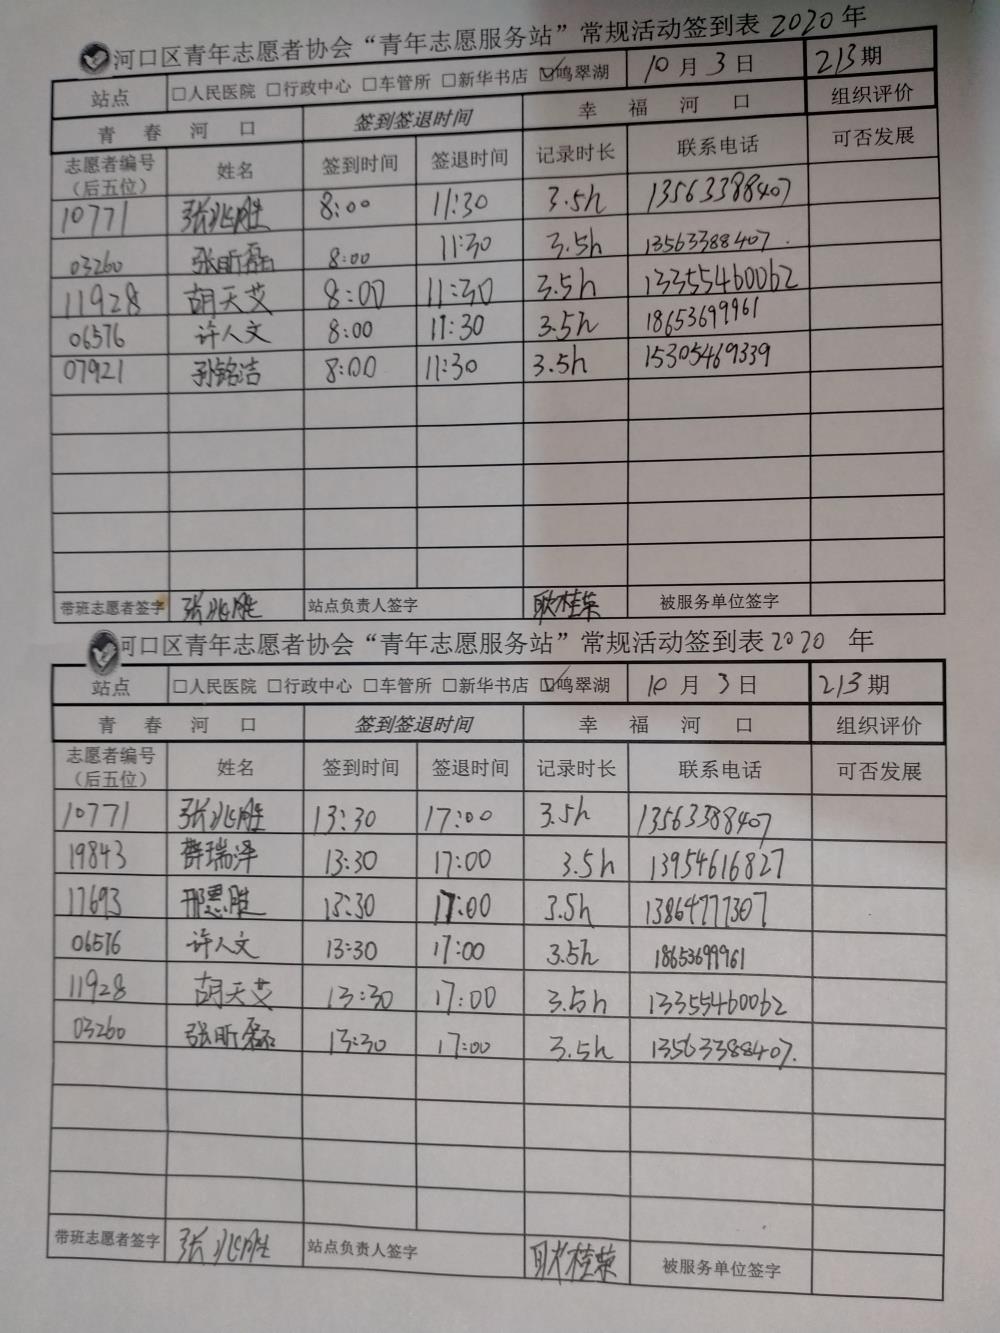 河口区青年志愿者协会“青年志愿服务站”常规活动签到表 2020 年
站点 □人民医院 □行政中心 □车管所 □新华书店 ☑鸣翠湖 10 月 3 日 213 期
青 春 河 口 签到签退时间 幸 福 河 口 组织评价
志愿者编号（后五位） 姓名 签到时间 签退时间 记录时长 联系电话 可否发展
10771 张兆胜 8:00 11:30 3.5h 13563388407
03260 张昕磊 8:00 11:30 3.5h 13563388407.
11928 胡天艾 8:00 11:30 3.5h 13355460062
06576 许人文 8:00 11:30 3.5h 18653699961
07921 孙铭洁 8:00 11:30 3.5h 15305469339
带班志愿者签字 张兆胜 站点负责人签字 耿桂荣 被服务单位签字
河口区青年志愿者协会“青年志愿服务站”常规活动签到表 2020 年
站点 □人民医院 □行政中心 □车管所 □新华书店 ☑鸣翠湖 10 月 3 日 213 期
青 春 河 口 签到签退时间 幸 福 河 口 组织评价
志愿者编号（后五位） 姓名 签到时间 签退时间 记录时长 联系电话 可否发展
10771 张兆胜 13:30 17:00 3.5h 13563388407
19843 瑞泽 13:30 17:00 3.5h 13954616827
17693 13:30 17:00 3.5h 13864777307
06576 许人文 13:30 17:00 3.5h 18653699961
11928 胡天艾 13:30 17:00 3.5h 13355460062
03260 张昕磊 13:30 17:00 3.5h 13563388407.
带班志愿者签字 张兆胜 站点负责人签字 耿桂荣 被服务单位签字